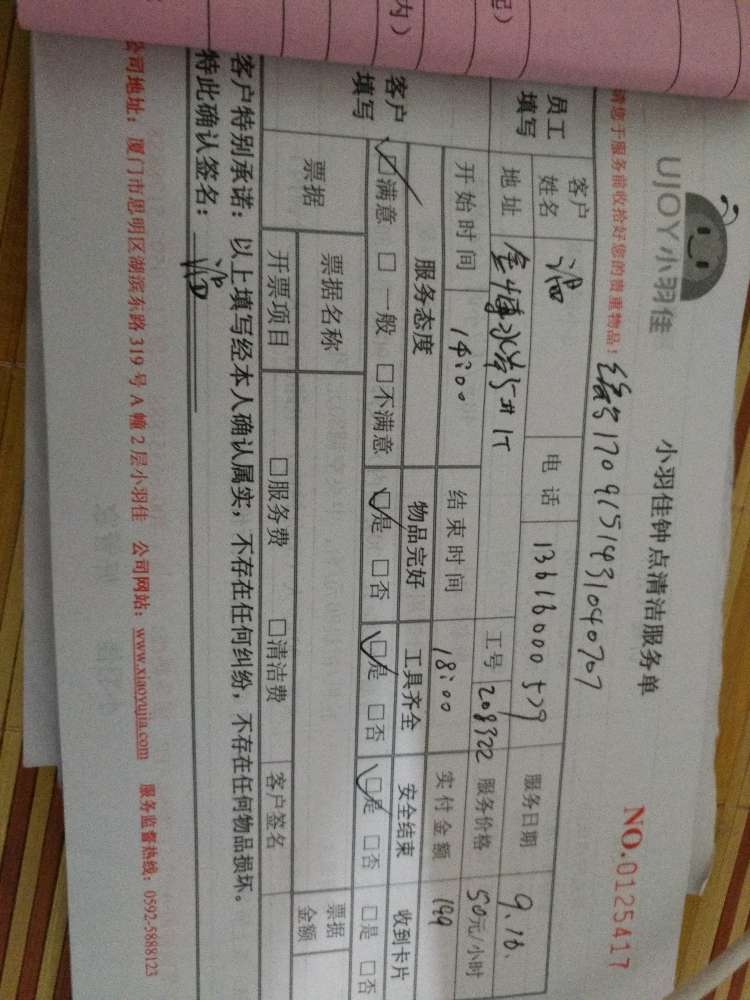 UJOY小羽佳
小羽佳钟点清洁服务单
NO.0125417
请您于服务前收拾好您的贵重物品！
1709151431040707
员工填写
客户姓名
电话 13616000579
服务日期 9.16.
地址
工号 208322
服务价格 50元/小时
开始时间 14:00
结束时间 18:00
实付金额 199
客户填写
服务态度 物品完好 工具齐全 安全结束 收到卡片
☑满意 □一般 □不满意 ☑是 □否 ☑是 □否 ☑是 □否 □是 □否
票据
票据名称
票据金额
开票项目 □服务费 □清洁费 客户签名
客户特别承诺：以上填写经本人确认属实，不存在任何纠纷，不存在任何物品损坏。
特此确认签名：
公司地址：厦门市思明区湖滨东路319号A幢2层小羽佳 公司网站：www.xiaoyujia.com 服务监督热线：0592-5888123